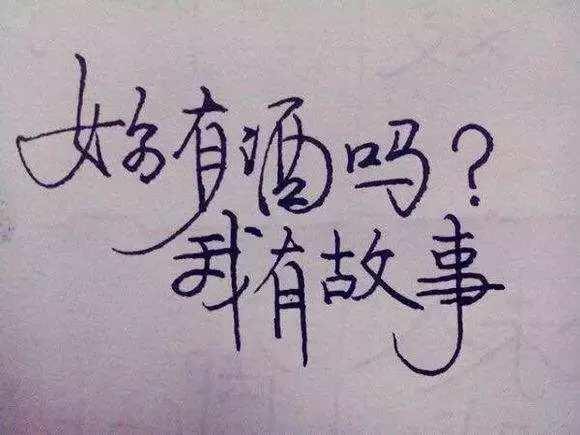 妳有酒吗？
我有故事